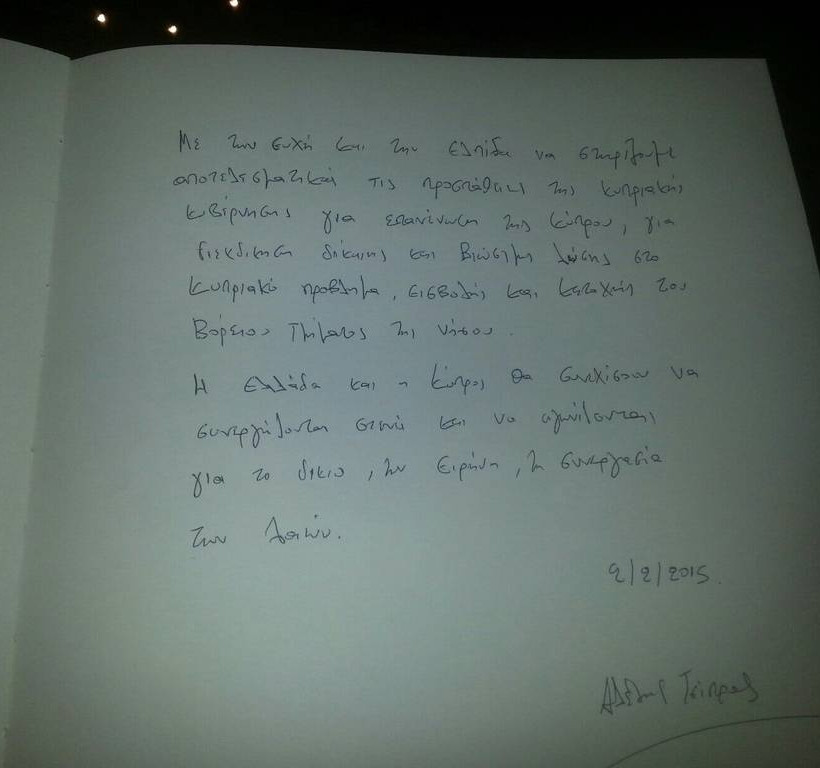 Με την ευχή και την ελπίδα να στηρίξουμε
αποτελεσματικά τις προσπάθειες της κυπριακής
κυβέρνησης για επανένωση της Κύπρου, για
διεκδίκηση δίκαιης και βιώσιμης λύσης στο
κυπριακό πρόβλημα, εισβολής και κατοχής του
Βόρειου Τμήματος της νήσου.
Η Ελλάδα και η Κύπρος θα συνεχίσουν να
συνεργάζονται στενά και να αγωνίζονται
για το δίκιο, την Ειρήνη, τη συνεργασία
των Λαών.
2/2/2015.
Αλέξης Τσίπρας